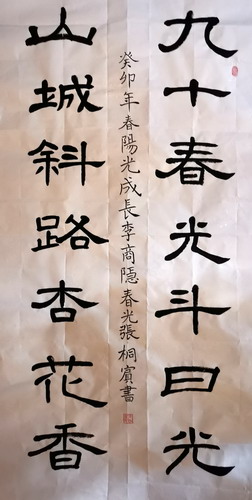 九十春光斗日光
山城斜路杏花香
癸卯年春陽光成長李商隱春光張桐賓書